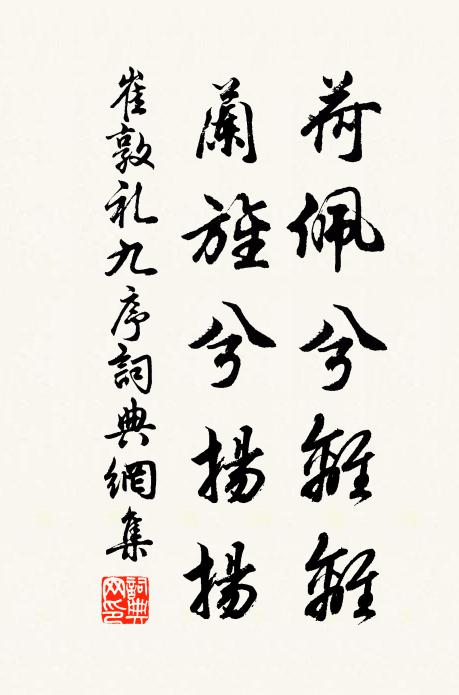 荷佩兮離離
蘭旌兮揚揚
崔敦礼九序詞典網集
詞典網印